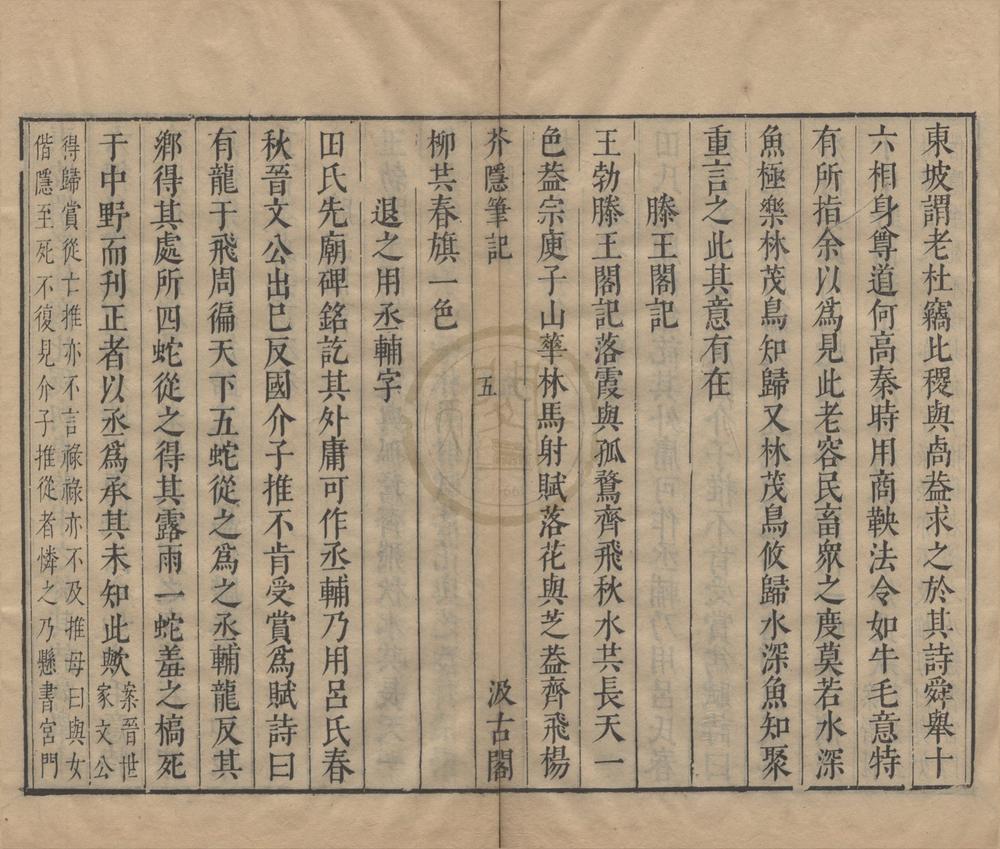 東坡謂老杜竊比稷與卨葢求之於其詩舜舉十
六相身尊道何高秦時用商鞅法令如牛毛意特
有所指余以爲見此老容民畜衆之度莫若水深
魚極樂林茂鳥知歸又林茂鳥攸歸水深魚知聚
重言之此其意有在
滕王閣記
王勃滕王閣記落霞與孤鶩齊飛秋水共長天一
色葢宗庾子山華林馬射賦落花與芝葢齊飛楊
芥隱筆記 五 汲古閣
柳共春旗一色
退之用丞輔字
田氏先廟碑銘訖其外庸可作丞輔乃用呂氏春
秋晉文公出巳反國介子推不肯受賞爲賦詩曰
有龍于飛周徧天下五蛇從之爲之丞輔龍反其
鄉得其處所四蛇從之得其露雨一蛇羞之槁死
于中野而刊正者以丞爲承其未知此歟案晉世
家文公
得歸賞從亡推亦不言祿祿亦不及推母曰與女
偕隱至死不復見介子推從者憐之乃懸書宮門